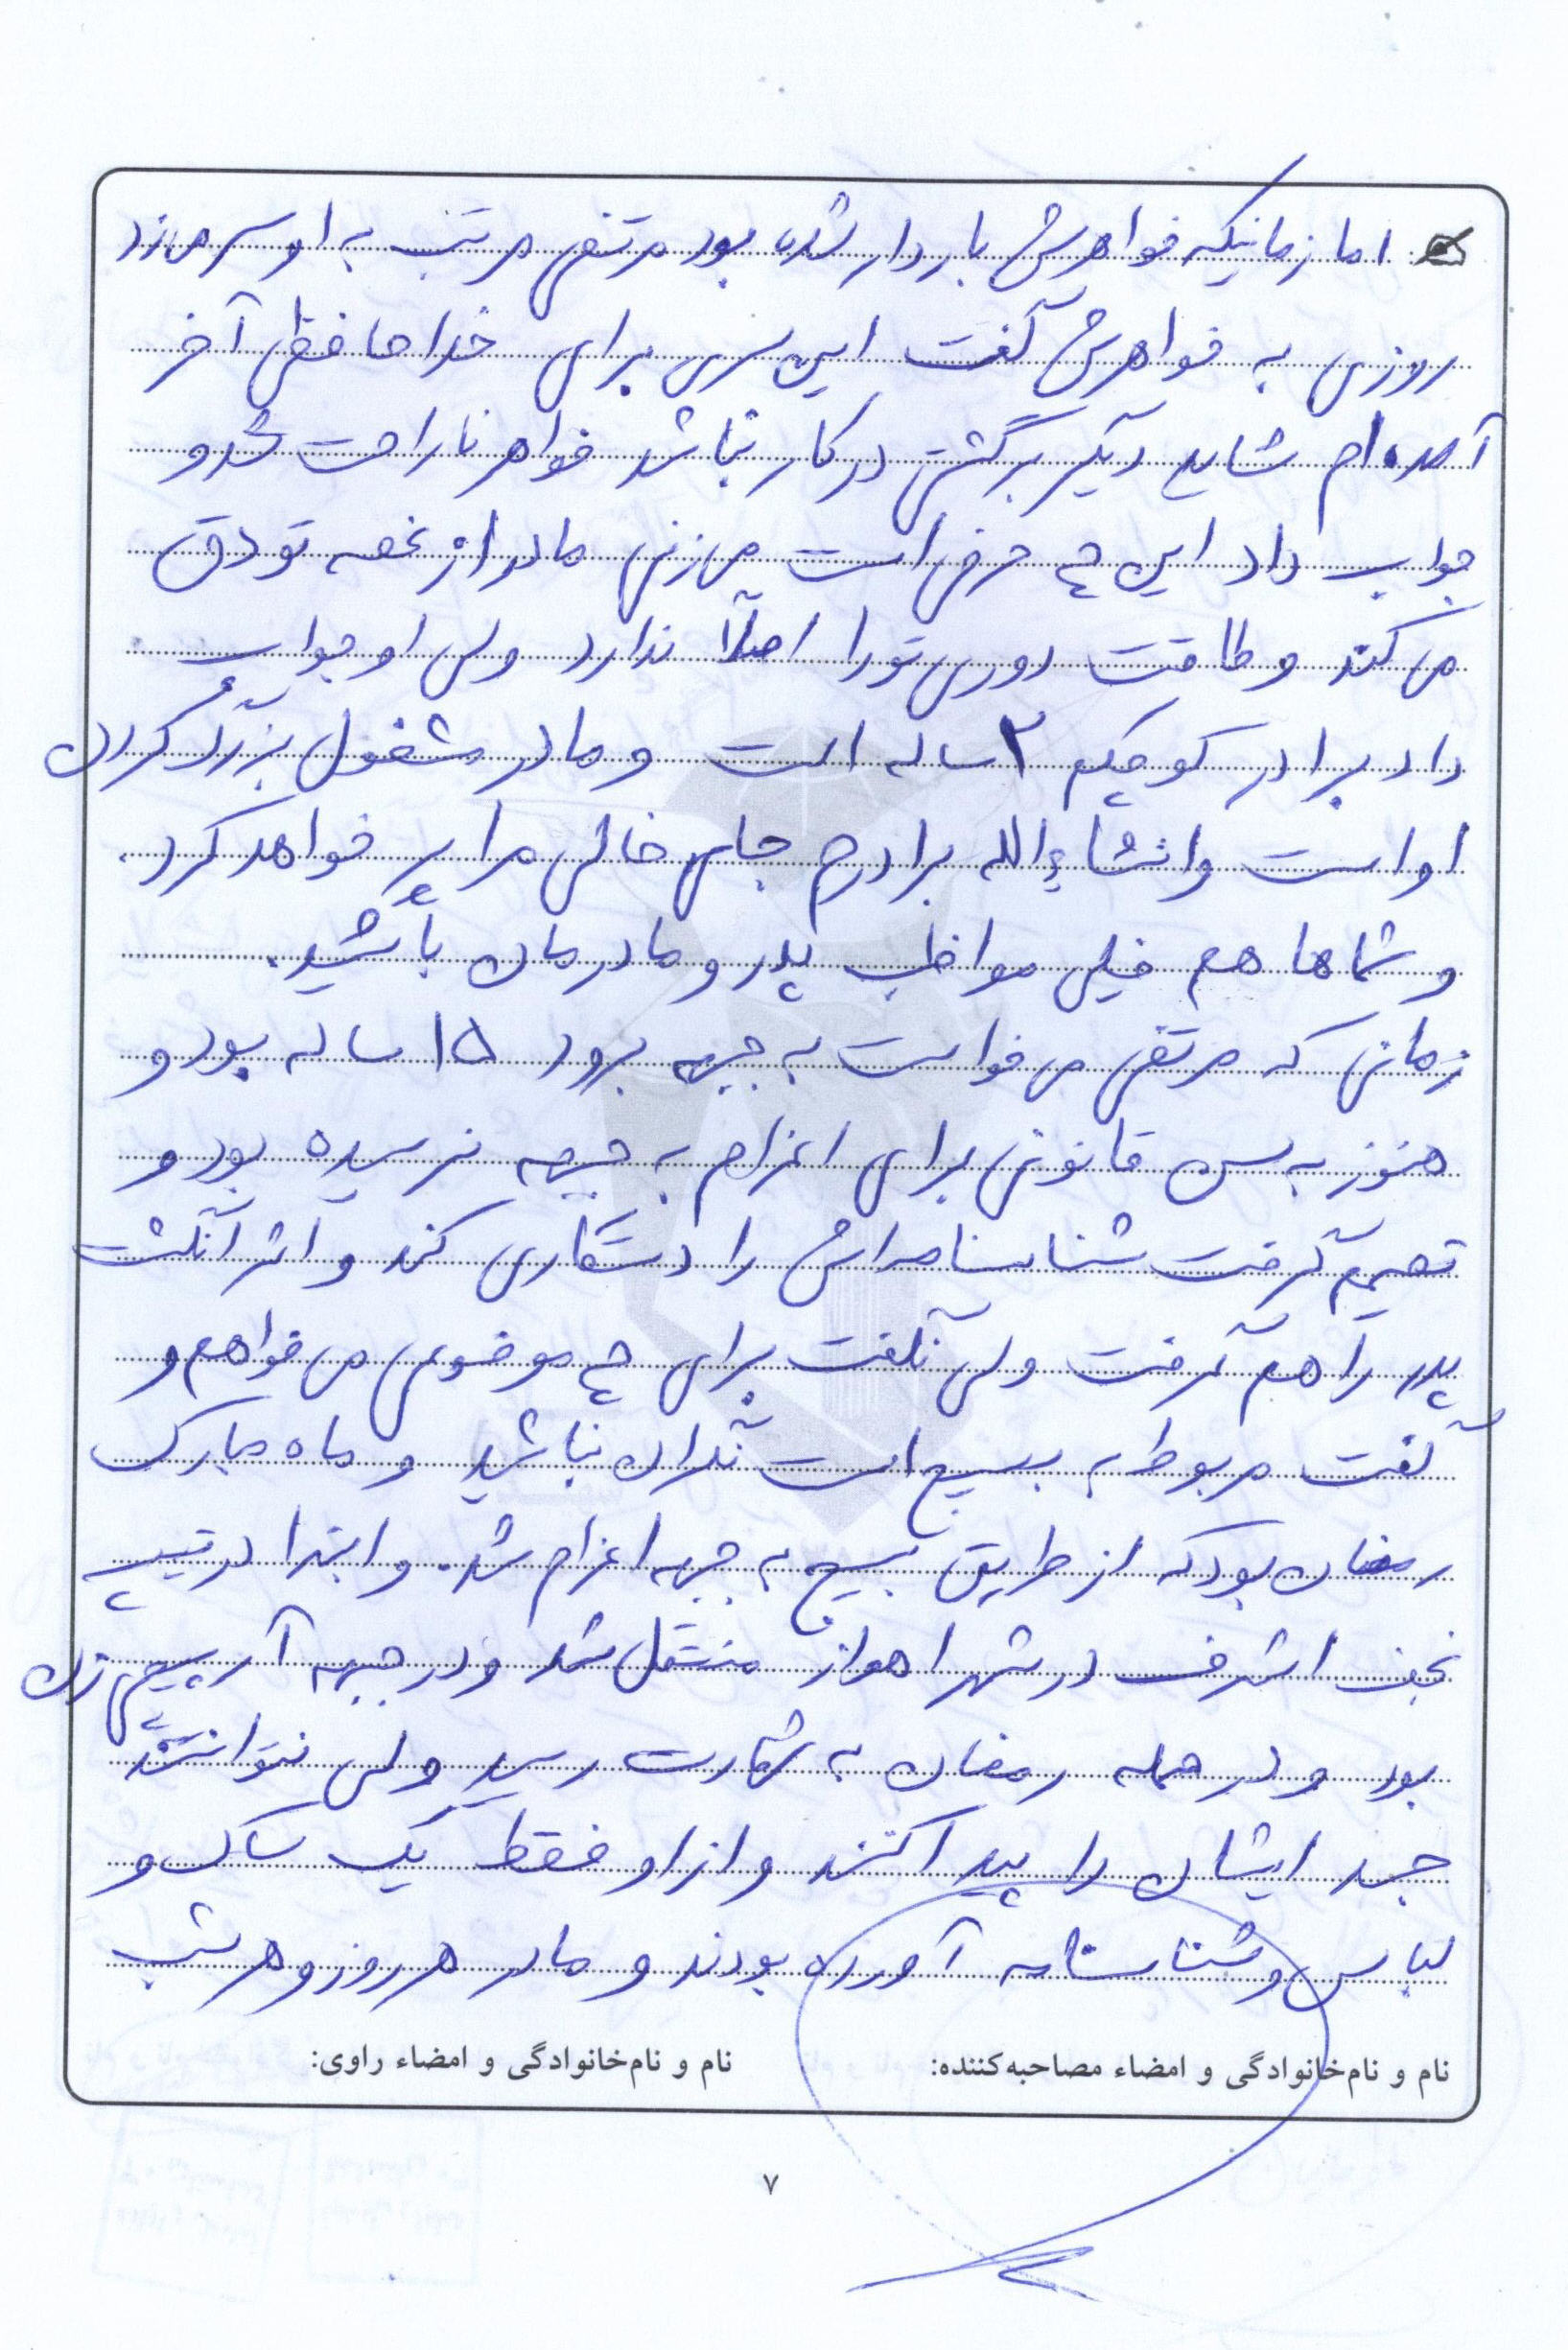 اما زمانیکه خواهرش باردار شده بود مرتضی مرتب به او سر می‌زد
روزی به خواهرش گفت این سری برای خداحافظی آخر
آمده‌ام شاید دیگر برگشتی در کار نباشد خواهر ناراحت شد و
جواب داد این چه حرفی است می‌زنی مادر از غصه تو دق
می‌کند و طاقت دوری تو را اصلاً ندارد ولی او جواب
داد برادر کوچکم ۲ ساله است و مادر مشغول بزرگ کردن
او است و انشاءالله برادرم جای خالی مرا پر خواهد کرد.
و شماها هم خیلی مواظب پدر و مادرمان باشید.
زمانی که مرتضی می‌خواست به جبهه برود ۱۵ ساله بود و
هنوز به سن قانونی برای اعزام به جبهه نرسیده بود و
تصمیم گرفت شناسنامه‌اش را دستکاری کند و اثر انگشت
پدر را هم گرفت ولی نگفت برای چه موضوعی می‌خواهم و
گفت مربوط به بسیج است نگران نباشید و ماه مبارک
رمضان بود که از طریق بسیج به جبهه اعزام شد. و ابتدا در تیپ
نجف اشرف در شهر اهواز منتقل شد و در جبهه آرپیچی زن
بود و در حمله رمضان به شهادت رسید ولی نتوانستند
جسد ایشان را پیدا کنند و از او فقط یک ساک و
لباس و شناسنامه آورده بودند و مادر هر روز و هر شب
نام و نام‌خانوادگی و امضاء مصاحبه‌کننده: نام و نام‌خانوادگی و امضاء راوی:
۷